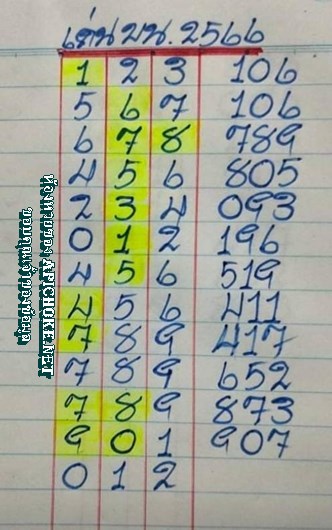 เด่นบน.2566
1 2 3 106
5 6 7 106
6 7 8 789
4 5 6 805
2 3 4 093
0 1 2 196
4 5 6 519
4 5 6 411
7 8 9 417
7 8 9 652
7 8 9 873
9 0 1 907
0 1 2
ห้องหวยซอง APICHOKE.NET
ขอบคุณเจ้าของข้อมูล